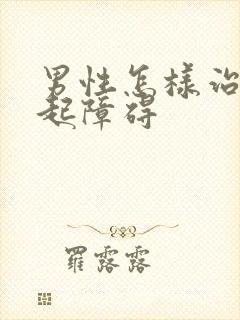 男性怎樣治
起障碍
羅露露